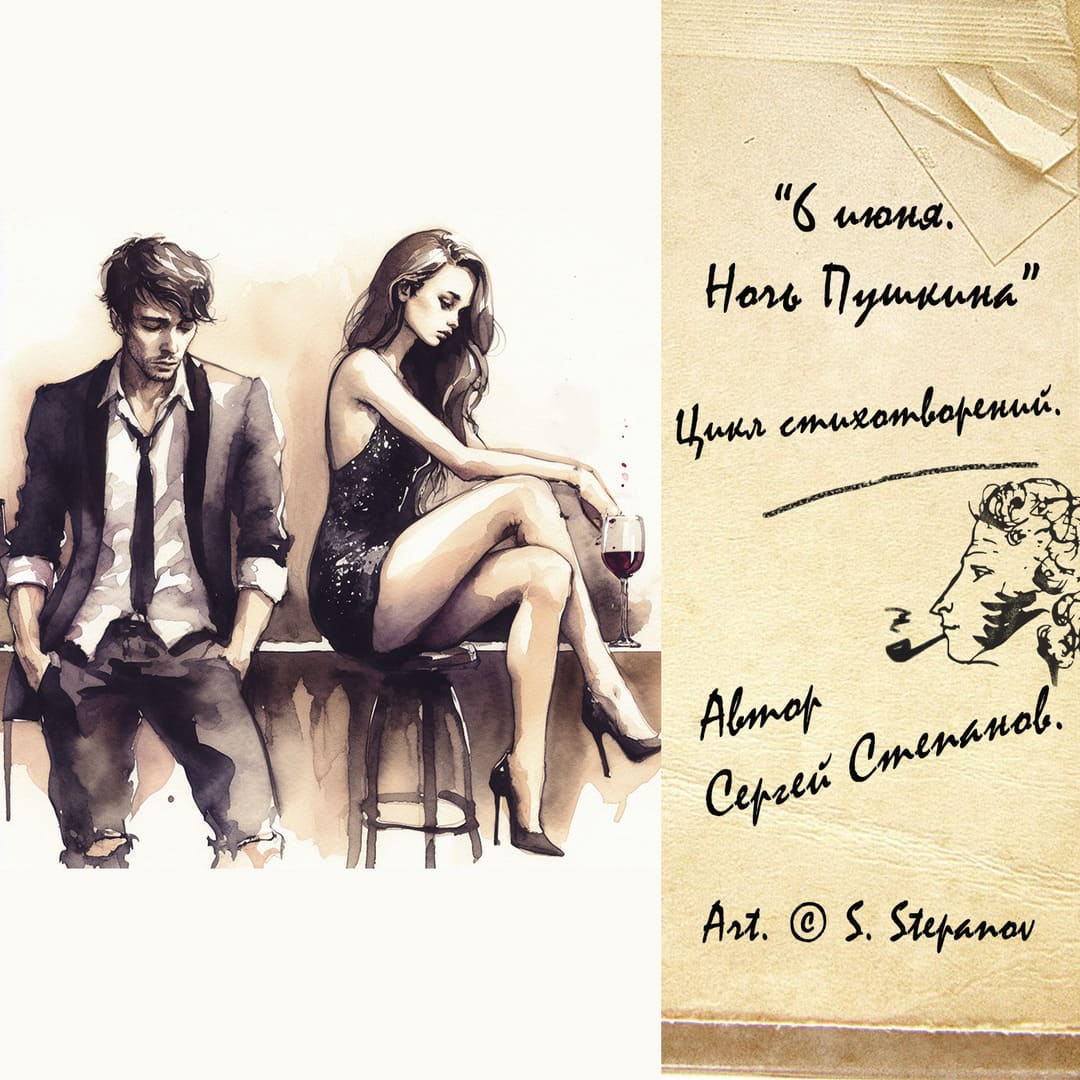 “6 июня.
Ночь Пушкина”
Цикл стихотворений.
Автор
Сергей Степанов.
Art. © S. Stepanov